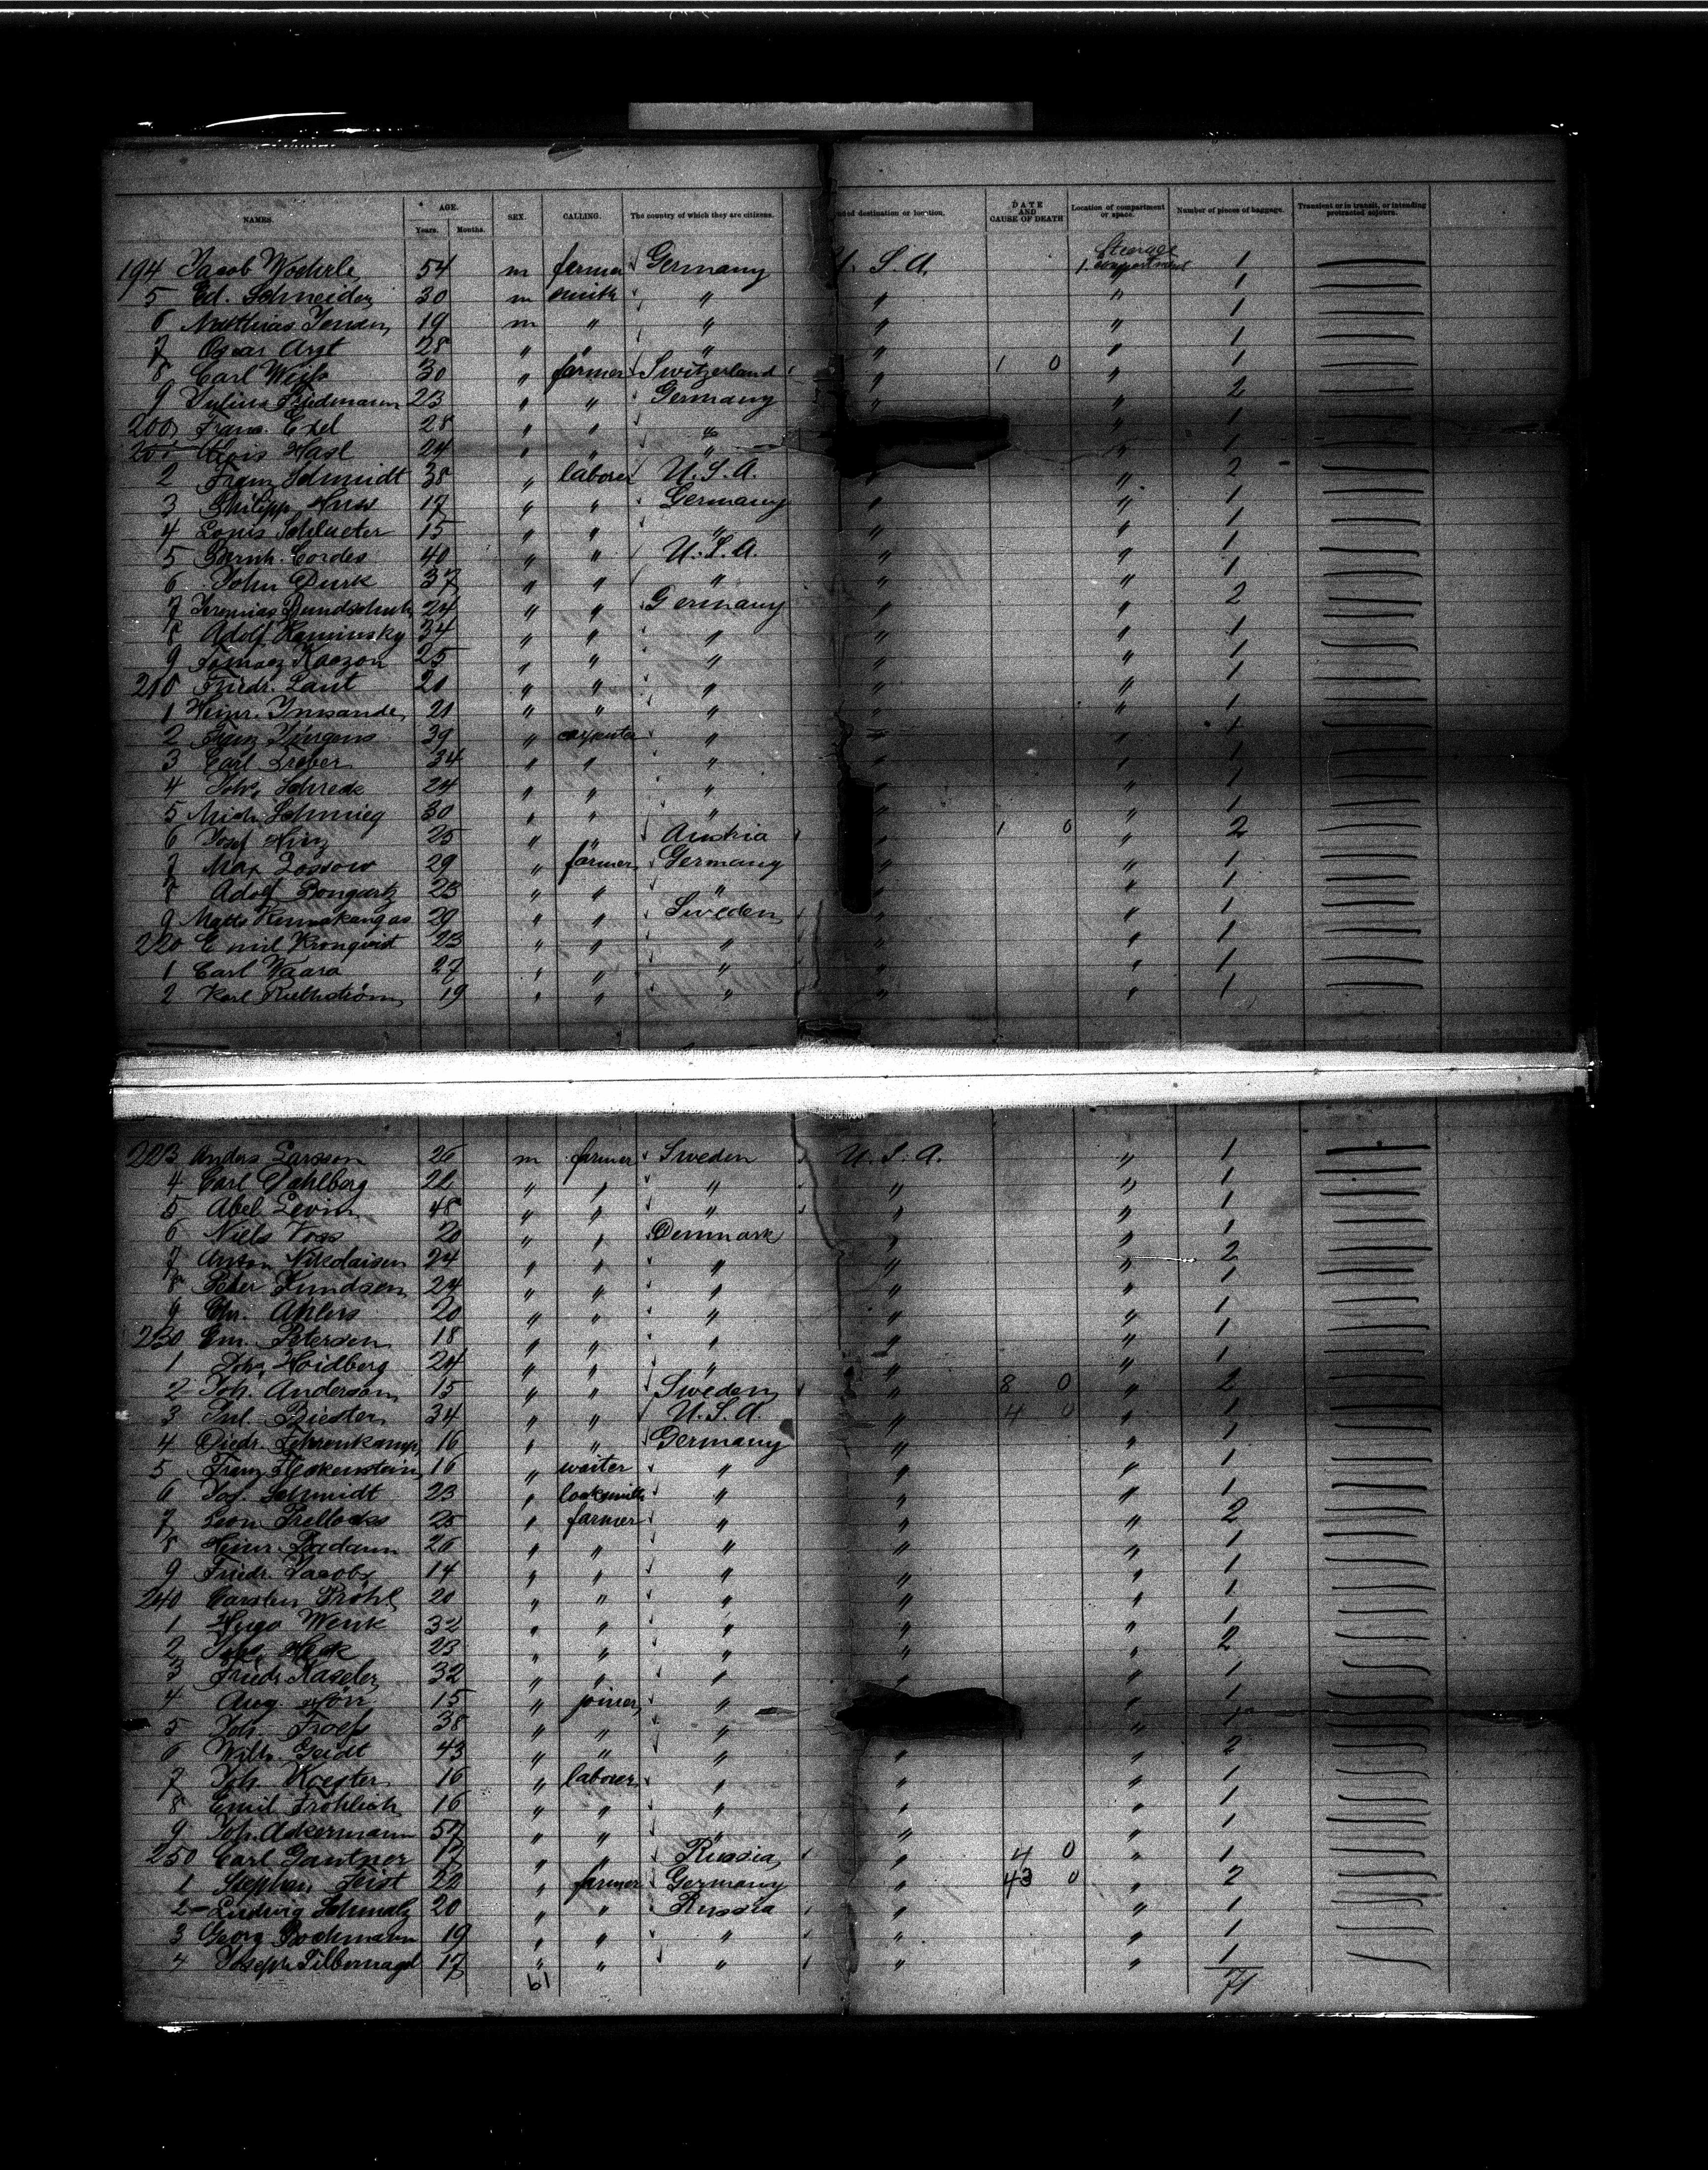 NAMES. AGE. SEX. CALLING. The country of which they are citizens. of destination or location. DATE AND CAUSE OF DEATH Location of compartment or space. Number of pieces of baggage. Transient or in transit, or intending protracted sojourn.
Years. Months.
194 Jacob Woehrle 54 m farmer Germany U. S. A. Steerage 1. compartment 1
5 Ed. Schneider 30 m smith " " " 1
6 Matthias 19 m " " " " 1
7 Oscar Arzt 28 " " " " " 1
8 Carl Weiss 30 " farmer Switzerland " 1 0 " 1
9 Julius Friedmann 23 " " Germany " " 2
200 Franz Exel 28 " " " " 1
201 Alois Hasl 24 " " " " 1
2 Franz Schmidt 38 " laborer U.S.A. " " 2
3 Philipp 17 " " Germany " " 1
4 Louis Schlueter 15 " " " " " 1
5 Bernh. Cordes 40 " " U.S.A. " " 1
6 John Durk 37 " " " " " 1
7 Jeremias Bundschuh 24 " " Germany " " 2
8 Adolf Kaminsky 34 " " " " " 1
9 Tomasz Kaczon 25 " " " " " 1
210 Friedr. Laut 21 " " " " " 1
1 Heinr. 21 " " " " 1
2 Franz Jürgens 39 " carpenter " " " 1
3 Carl Treber 34 " " " " 1
4 Joh. Schreck 24 " " " " " 1
5 Mich. Schmieg 30 " " " " 1
6 Josef Hinz 25 " " Austria 1 0 " 2
7 Max Lossow 29 " farmer Germany " 1
8 Adolf Bongartz 23 " " " " 1
9 Matts 29 " " Sweden " " 1
220 Emil Kronqvist 23 " " " " " 1
1 Carl Waara 27 " " " " " 1
2 Karl 19 " " " " " 1
223 Anders Larsson 26 m farmer Sweden U. S. A. " 1
4 Carl Dahlberg 22 " " " " " 1
5 Abel Levin 48 " " " " " 1
6 Niels Voss 20 " " Denmark " " 1
7 Anton Nikolaisen 24 " " " " " 2
8 Peter Lundsen 24 " " " " " 1
9 Chr. Ahlers 20 " " " " " 1
230 Em. Petersen 18 " " " " " 1
1 Joh. Hoidberg 24 " " " " " 1
2 Joh. Anderson 15 " " Sweden " 8 0 " 2
3 Jul. Biester 34 " " U.S.A. " 4 0 " 1
4 Diedr. Fehrenkamp 16 " " Germany " " 1
5 Franz Fleckenstein 16 " waiter " " " 1
6 Jos. Schmidt 23 " locksmith " " " 1
7 Leon 25 " farmer " " " 2
8 Heinr. Badann 26 " " " " " 1
9 Friedr. Jacoby 14 " " " " " 1
240 Carsten Pröhl 20 " " " " " 1
1 Hugo Wenk 32 " " " " " 1
2 Joh. Heck 23 " " " " " 2
3 Friedr. Kaseler 32 " " " " " 1
4 Aug. Hörr 15 " joiner " " 1
5 Joh. 38 " " " " 1
6 Wilh. Geidt 43 " " " " " 2
7 Joh. Koester 16 " laborer " " " 1
8 Emil Fröhlich 16 " " " " " 1
9 Joh. Ackermann 57 " " " " " 1
250 Carl Gantner 17 " " Russia " 4 0 " 1
1 Stephan Feist 22 " farmer Germany " 43 0 " 2
2 Ludwig Schmalz 20 " " Russia " " 1
3 Georg Bochmann 19 " " " " " 1
4 Joseph Silbernagel 17 " " " " " 1
61 71